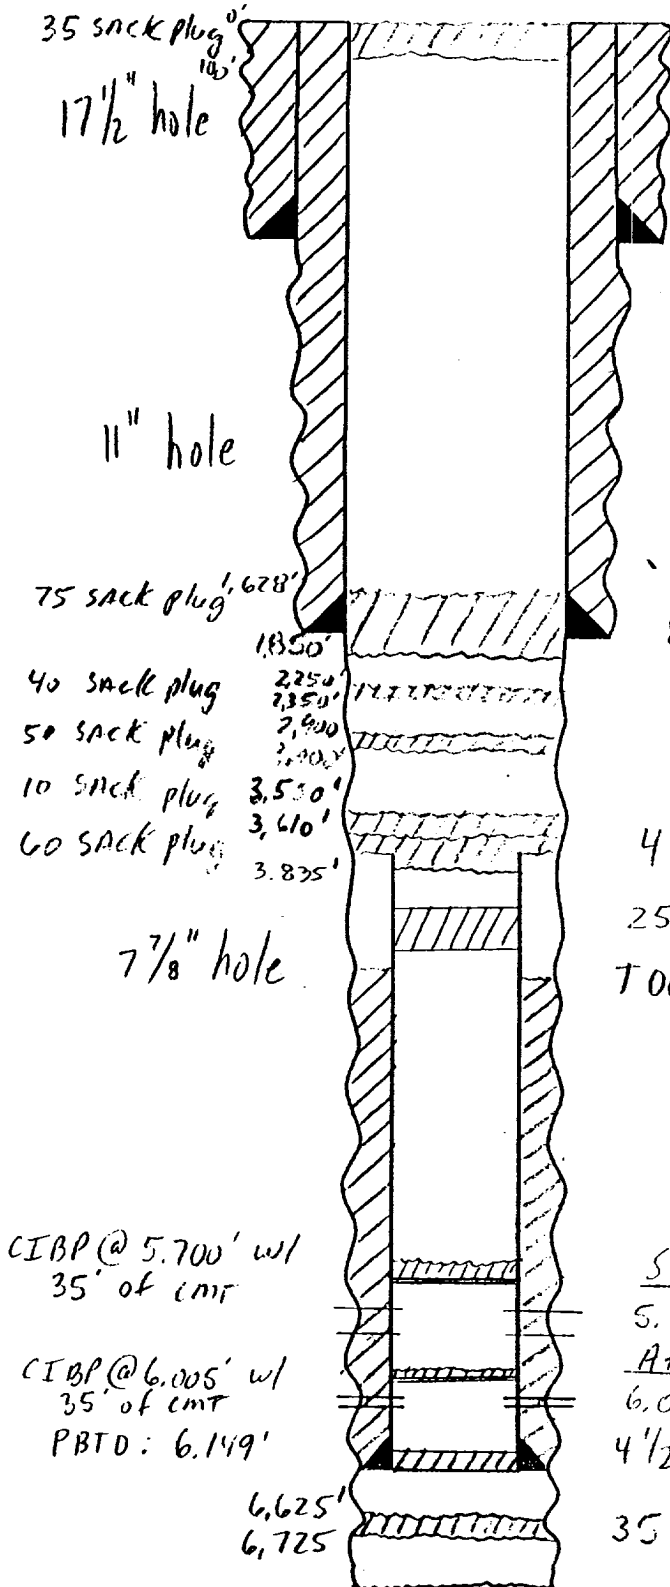 35 SACK plug 0'
100'
17 1/2" hole
11" hole
75 SACK plug 1,628'
1,850'
40 SACK plug 2,250'
2,350'
50 SACK plug 2,900
10 SACK plug 3,550'
3,610'
60 SACK plug
3.835'
4
25
7 7/8" hole
TO
CIBP @ 5.700' w/
35' of cmT
S
5.
CIBP @ 6.005' w/
35' of cmT
6.0
PBTD: 6.149'
4 1/2
6,625'
6,725
35